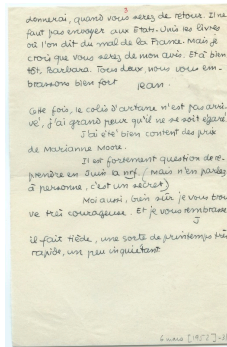 3
donnerai, quand vous serez de retour. Il ne
faut pas envoyer aux Etats-Unis les livres
où l'on dit du mal de la France. Mais je
crois que vous serez de mon avis. Et à bien
tôt, Barbara. Tous deux, nous vous em-
brassons bien fort
Jean.
Cette fois, le colis d'artane n'est pas arri-
vé, j'ai grand peur qu'il ne se soit égaré
J'ai été bien content des prix
de Marianne Moore.
Il est fortement question de re-
prendre en Juin la nrf. (mais n'en parlez
à personne, c'est un secret)
Moi aussi, bien sûr je vous trou
ve très courageuse. Et je vous rembrasse
J
il fait tiède, une sorte de printemps très
rapide, un peu inquiétant
6 mars [1952]